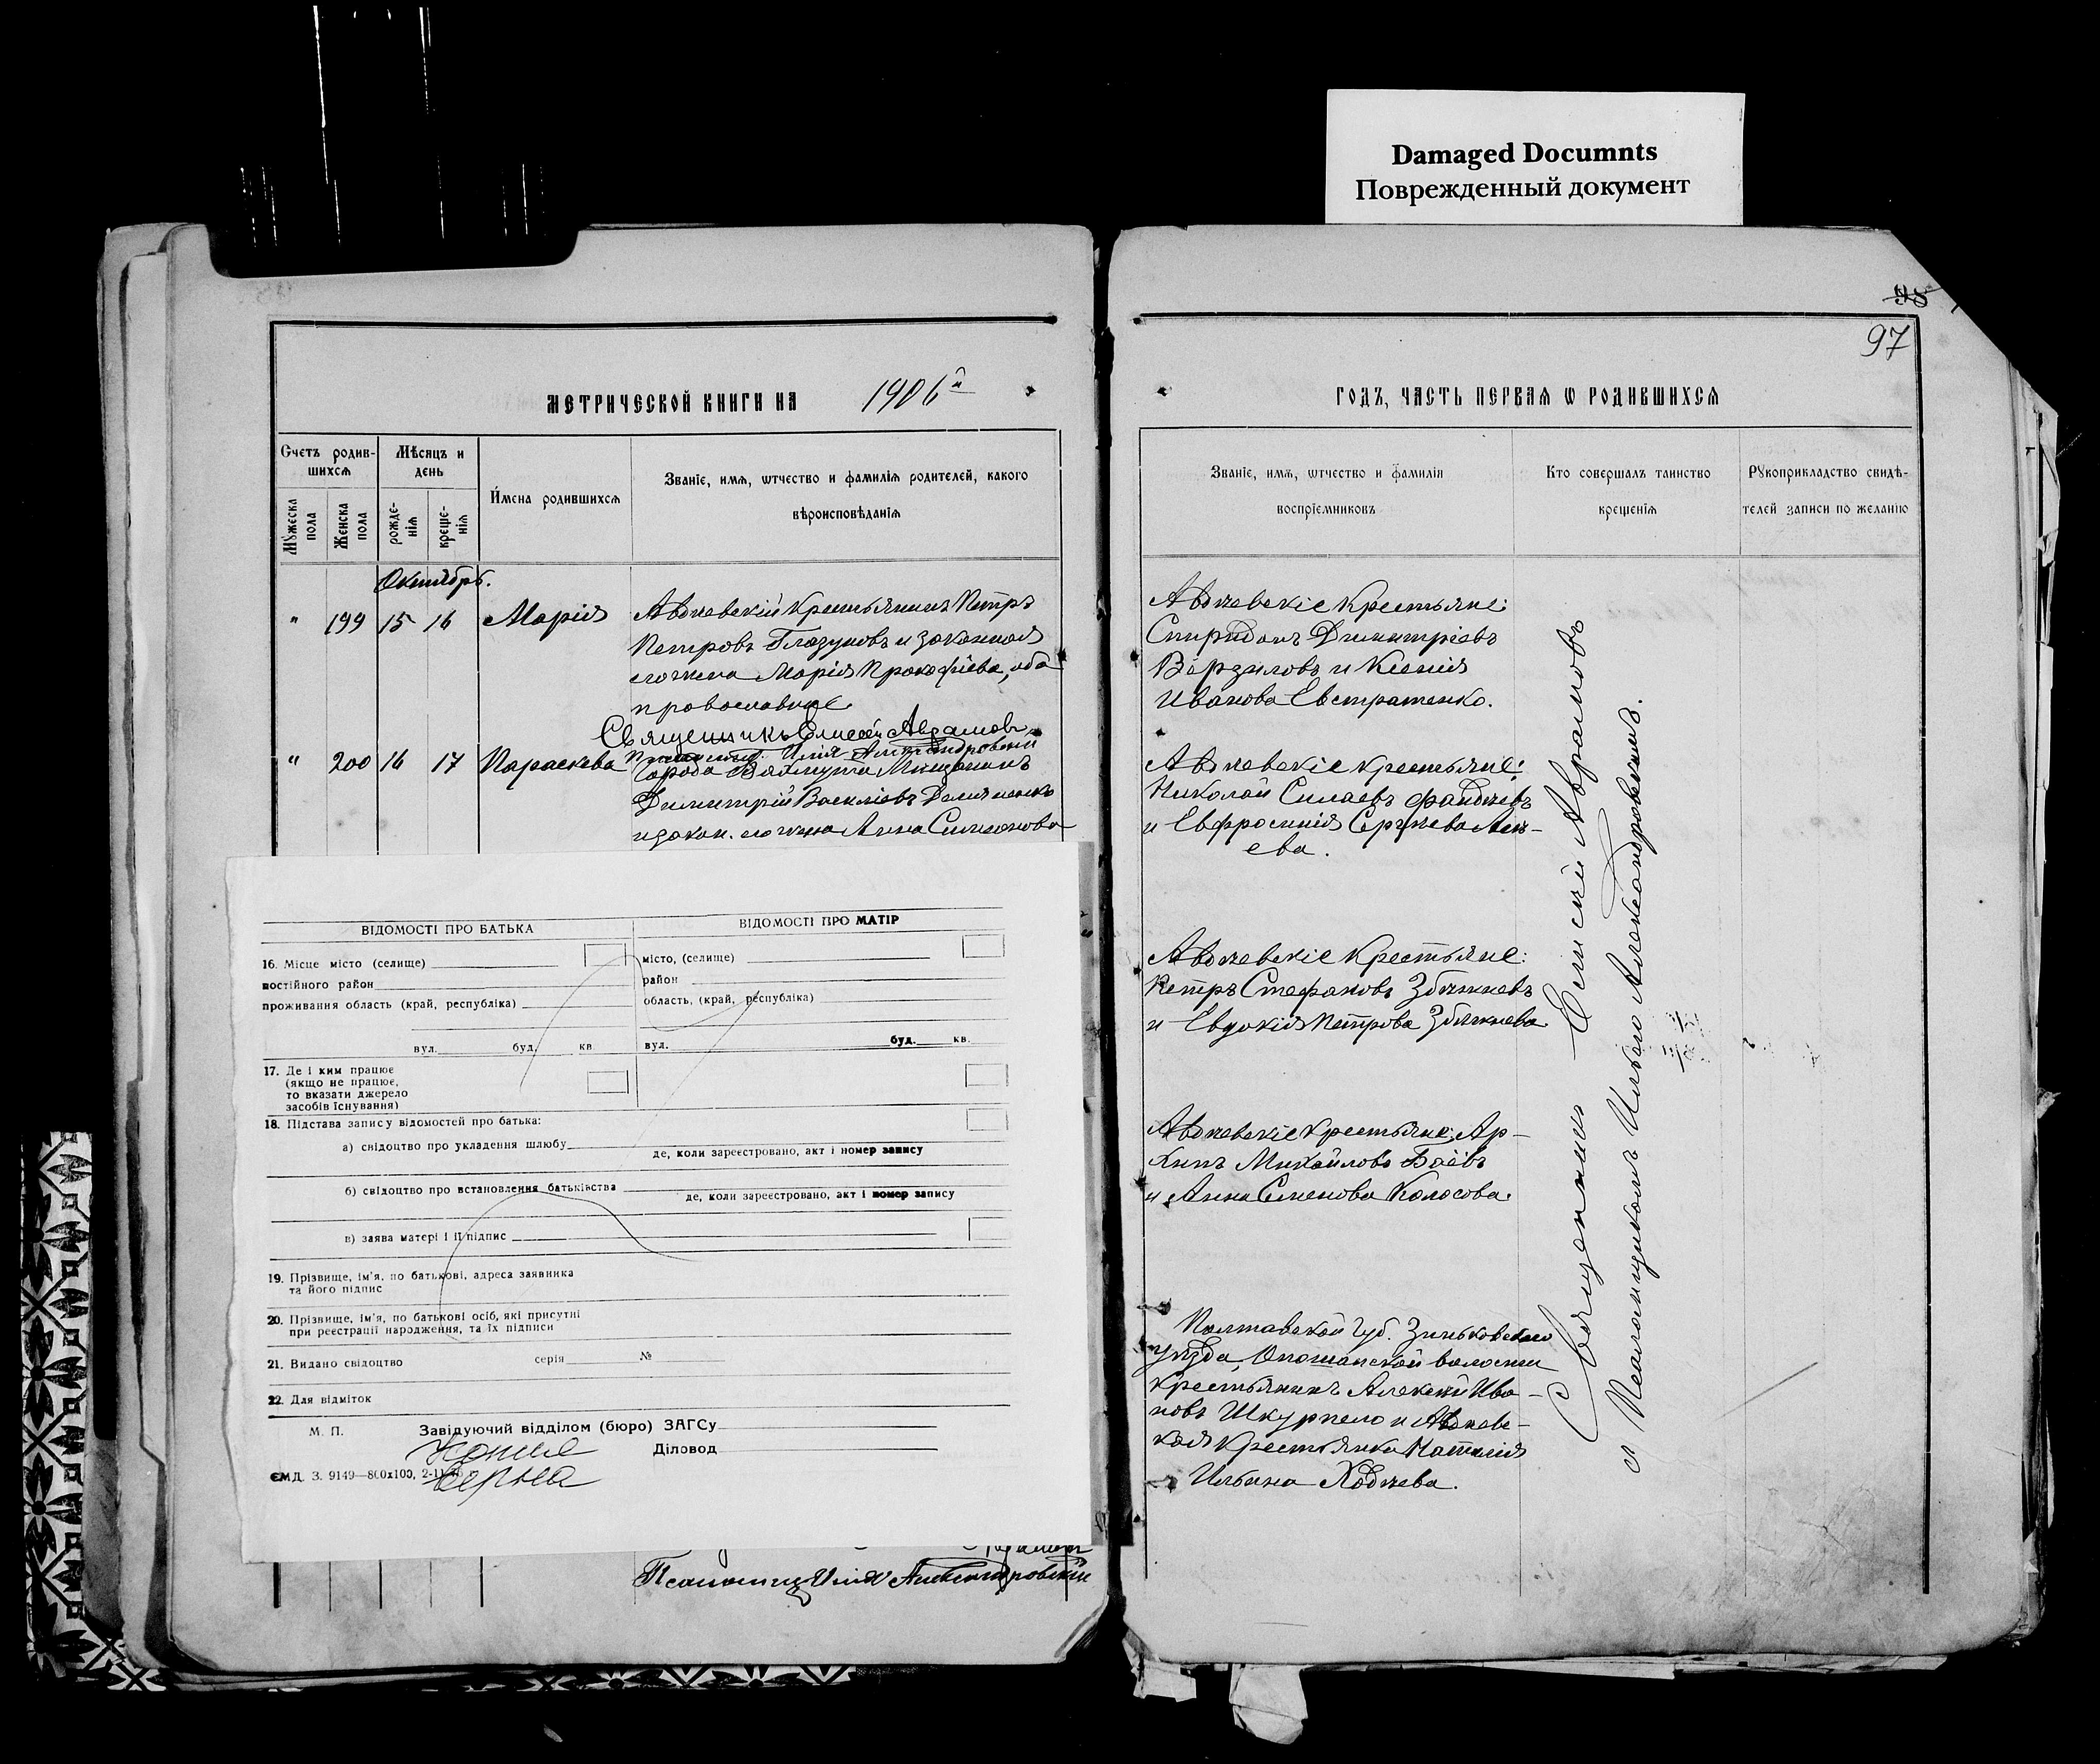 Damaged Documnts
Поврежденный документ
98
97
МЕТРИЧЕСКОЙ КНИГИ НА 1906й
Счетъ родив-
шихся
Мѣсяцъ и
день
Мужеска
пола
Женска
пола
рожде-
нія
креще-
нія
Имена родившихся
Званіе, имя, ѡтчество и фамилія родителей, какого
вѣроисповѣданія
Октябрь.
" 199 15 16 Марія
Авдѣевскій крестьянинъ Петръ
Петровъ Глазуновъ и законная
его жена Марія Прокофіева, оба
православные
Священникъ Елисей Авраамовъ
Псаломщ. Илія Александровскій
" 200 16 17 Параскева
Города Бахмута мѣщанинъ
Димитрій Василіевъ
и закон. его жена Анна Симеонова
ВІДОМОСТІ ПРО БАТЬКА
ВІДОМОСТІ ПРО МАТІР
16. Місце місто (селище)
постійного район
проживання область (край, республіка)
вул. буд. кв.
місто, (селище)
район
область, (край, республіка)
вул. буд. кв.
17. Де і ким працює
(якщо не працює,
то вказати джерело
засобів існування)
18. Підстава запису відомостей про батька:
а) свідоцтво про укладення шлюбу
де, коли зареєстровано, акт і номер запису
б) свідоцтво про встановлення батьківства
де, коли зареєстровано, акт і номер запису
в) заява матері і її підпис
19. Прізвище, ім'я, по батькові, адреса заявника
та його підпис
20. Прізвище, ім'я, по батькові осіб, які присутні
при реєстрації народження, та їх підписи
21. Видано свідоцтво серія №
22. Для відміток
М. П. Завідуючий відділом (бюро) ЗАГСу
Діловод
ЄМД. З. 9149—800х100, 2-11
Псаломщ. Илія Александровскій
ГОДЪ, ЧАСТЬ ПЕРВАЯ Ѡ РОДИВШИХСЯ
Званіе, имя, ѡтчество и фамилія
воспріемниковъ
Кто совершалъ таинство
крещенія
Рукоприкладство свидѣ-
телей записи по желанію
Авдѣевскіе крестьяне:
Спиридонъ Димитріевъ
Верзиловъ и Ксенія
Иванова Евстратенко.
Авдѣевскіе крестьяне:
Николай Силаевъ
и Евфросинія Сергѣева
ева.
Авдѣевскіе крестьяне:
Петръ Стефановъ Збажневъ
и Евдокія Петрова Збажнева.
Авдѣевскіе крестьяне: Ар-
хипъ Михайловъ Баевъ
и Анна Семенова Колосова.
Полтавской губ. Зиньковскаго
уѣзда, Опошанской волости
крестьянинъ Алексѣй Ива-
новъ Шкурпело и Авдѣев-
кая крестьянка Наталія
Ильина Ходѣева.
Священникъ Елисей Авраамовъ
съ Псаломщикомъ Ильею Александровскимъ.